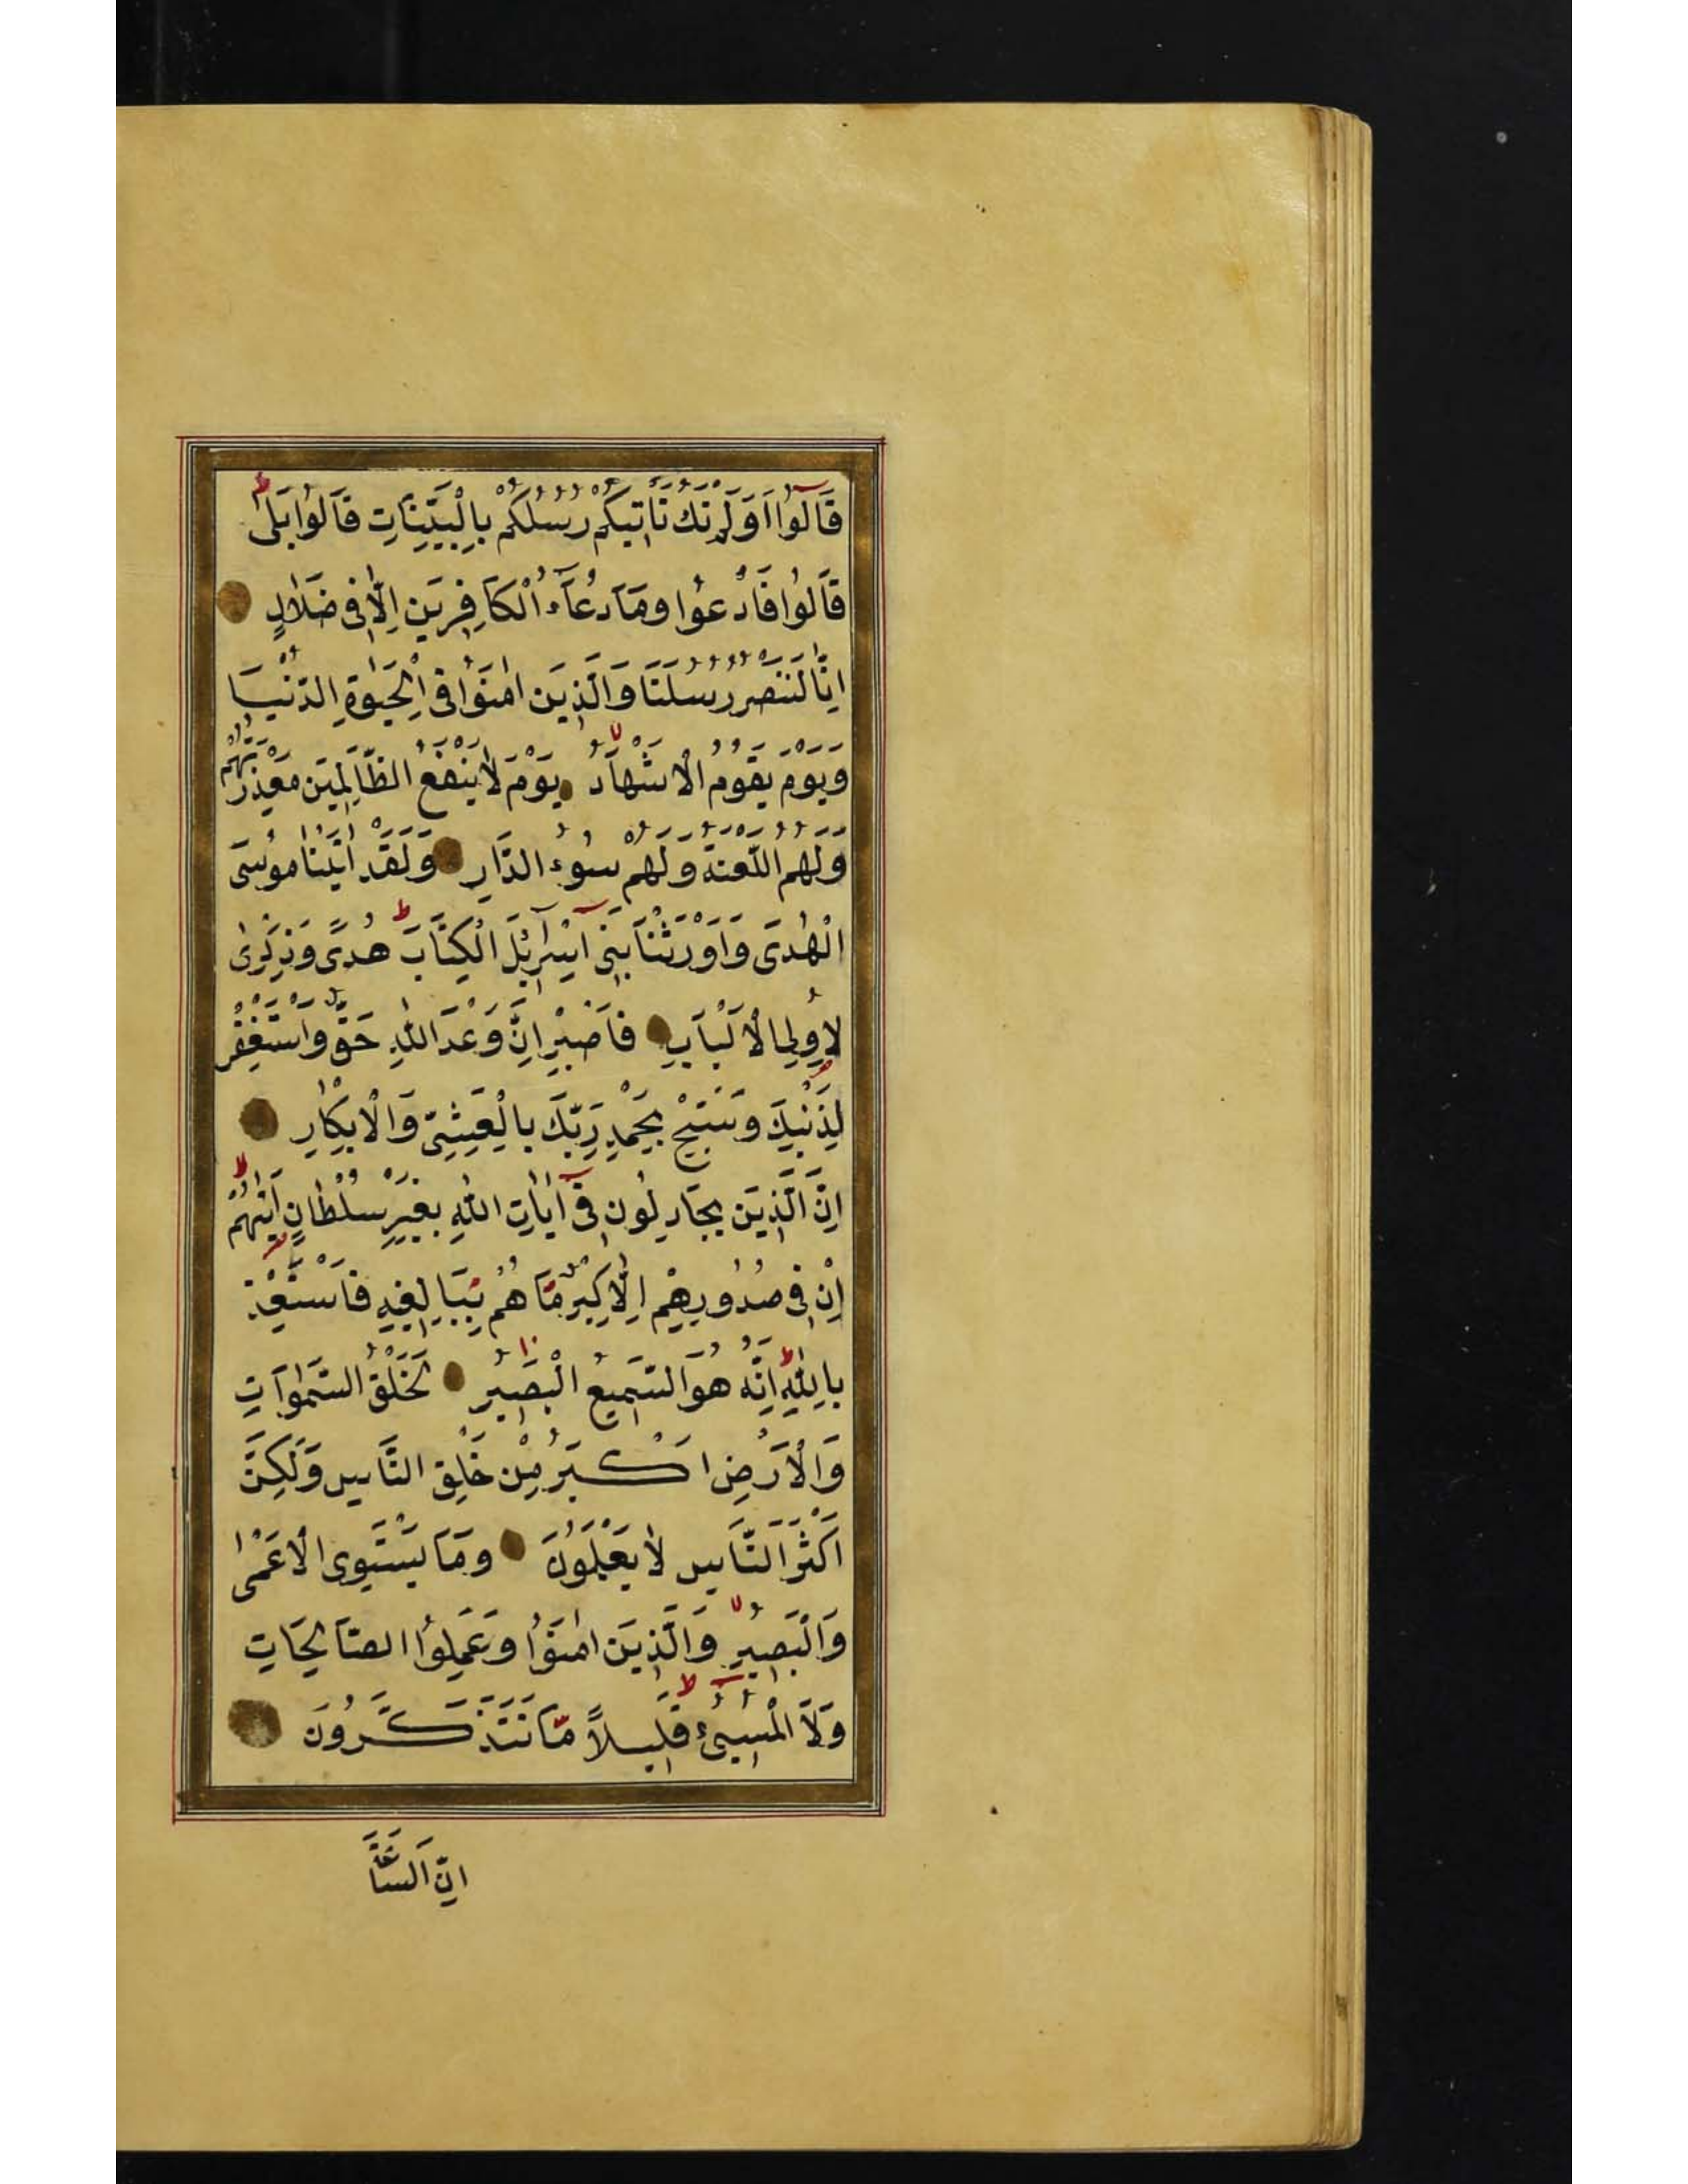 قَالُوا اَوَلَمْ تَكُ تَاْتِيكُمْ رُسُلُكُمْ بِالْبَيِّنَاتِ قَالُوا بَلٰى
قَالُوا فَادْعُوا وَمَا دُعَاۤءُ الْكَافِرِينَ اِلَّا فِى ضَلَالٍ
اِنَّا لَنَنْصُرُ رُسُلَنَا وَالَّذِينَ اٰمَنُوا فِى الْحَيٰوةِ الدُّنْيَا
وَيَوْمَ يَقُومُ الْاَشْهَادُ يَوْمَ لَا يَنْفَعُ الظَّالِمِينَ مَعْذِرَتُهُمْ
وَلَهُمُ اللَّعْنَةُ وَلَهُمْ سُوۤءُ الدَّارِ وَلَقَدْ اٰتَيْنَا مُوسَى
الْهُدٰى وَاَوْرَثْنَا بَنِىۤ اِسْرَاۤئِلَ الْكِتَابَ هُدًى وَذِكْرٰى
لِاُولِى الْاَلْبَابِ فَاصْبِرْ اِنَّ وَعْدَ اللّٰهِ حَقٌّ وَاسْتَغْفِرْ
لِذَنْبِكَ وَسَبِّحْ بِحَمْدِ رَبِّكَ بِالْعَشِىِّ وَالْاِبْكَارِ
اِنَّ الَّذِينَ يُجَادِلُونَ فِىۤ اٰيَاتِ اللّٰهِ بِغَيْرِ سُلْطَانٍ اَتٰيهُمْ
اِنْ فِى صُدُورِهِمْ اِلَّا كِبْرٌ مَّا هُمْ بِبَالِغِيهِ فَاسْتَعِذْ
بِاللّٰهِ اِنَّهُ هُوَ السَّمِيعُ الْبَصِيرُ لَخَلْقُ السَّمٰوَاتِ
وَالْاَرْضِ اَكْبَرُ مِنْ خَلْقِ النَّاسِ وَلٰكِنَّ
اَكْثَرَ النَّاسِ لَا يَعْلَمُونَ وَمَا يَسْتَوِى الْاَعْمٰى
وَالْبَصِيرُ وَالَّذِينَ اٰمَنُوا وَعَمِلُوا الصَّالِحَاتِ
وَلَا الْمُسِىۤءُ قَلِيلًا مَّا تَتَذَكَّرُونَ
اِنَّ السَّاعَةَ